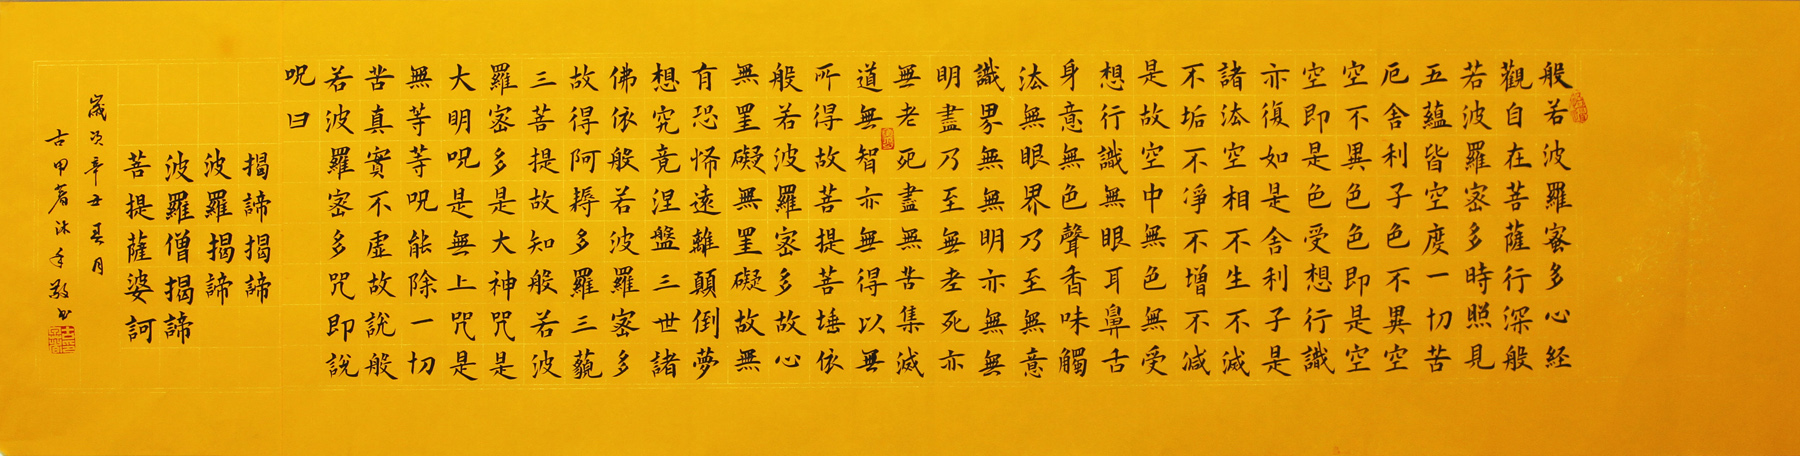 般若波羅蜜多心經
觀自在菩薩行深般
若波羅密多時照見
五蘊皆空度一切苦
厄舍利子色不異空
空不異色色即是空
空即是色受想行識
亦復如是舍利子是
諸法空相不生不滅
不垢不淨不增不減
是故空中無色無受
想行識無眼耳鼻舌
身意無色聲香味觸
法無眼界乃至無意
識界無無明亦無無
明盡乃至無老死亦
無老死盡無苦集滅
道無智亦無得以無
所得故菩提菩埵依
般若波羅密多故心
無罣礙無罣礙故無
有恐怖遠離顛倒夢
想究竟涅盤三世諸
佛依般若波羅密多
故得阿耨多羅三藐
三菩提故知般若波
羅密多是大神咒是
大明呪是無上咒是
無等等呪能除一切
苦真實不虛故說般
若波羅密多咒即說
呪曰
揭諦揭諦
波羅揭諦
波羅僧揭諦
菩提薩婆訶
歲次辛丑春月
古甲睿沐手敬書